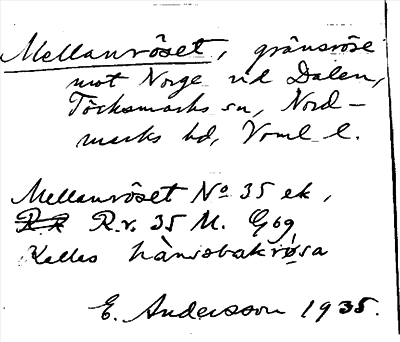 Mellanröset, gränsröse
mot Norge vid Dalen,
Töcksmarks sn, Nord-
marks hd, Vrml l.
Mellanröset No 35 ek,
R.R R.r. 35 M. G69
Kallas hànsbakrøsa
E. Andersson 1935.